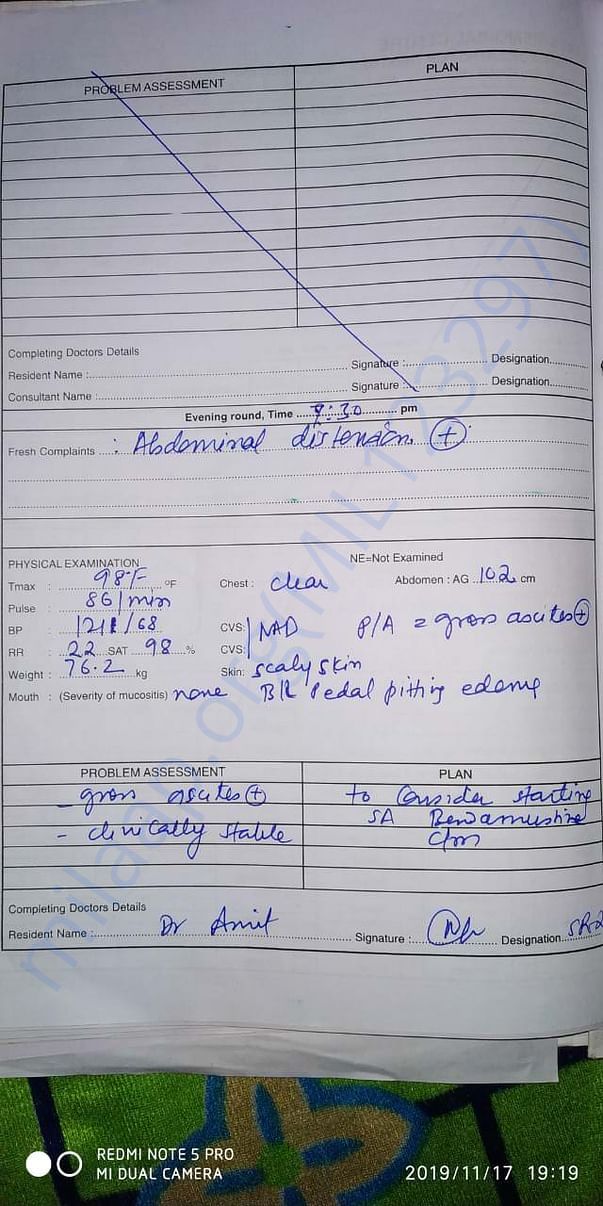 PROBLEM ASSESSMENT PLAN
Completing Doctors Details
Resident Name : Signature : Designation
Consultant Name : Signature : Designation
Evening round, Time 7:30 pm
Fresh Complaints : Abdominal distension +
PHYSICAL EXAMINATION NE=Not Examined
Tmax : 98°F °F Chest : clear Abdomen : AG 102 cm
Pulse : 86/min
BP : /68 CVS: NAD P/A = gross ascites +
RR : 22 SAT 98 % CVS:
Weight : 76.2 kg Skin: scaly skin
Mouth : (Severity of mucositis) none B/L Pedal pitting edema
PROBLEM ASSESSMENT PLAN
- gross ascites + to Consider starting
- clinically stable SA Bendamustine
Completing Doctors Details
Resident Name : Dr Amit Signature : Designation SR2
milaan.org(MIL123297)
REDMI NOTE 5 PRO
MI DUAL CAMERA 2019/11/17 19:19